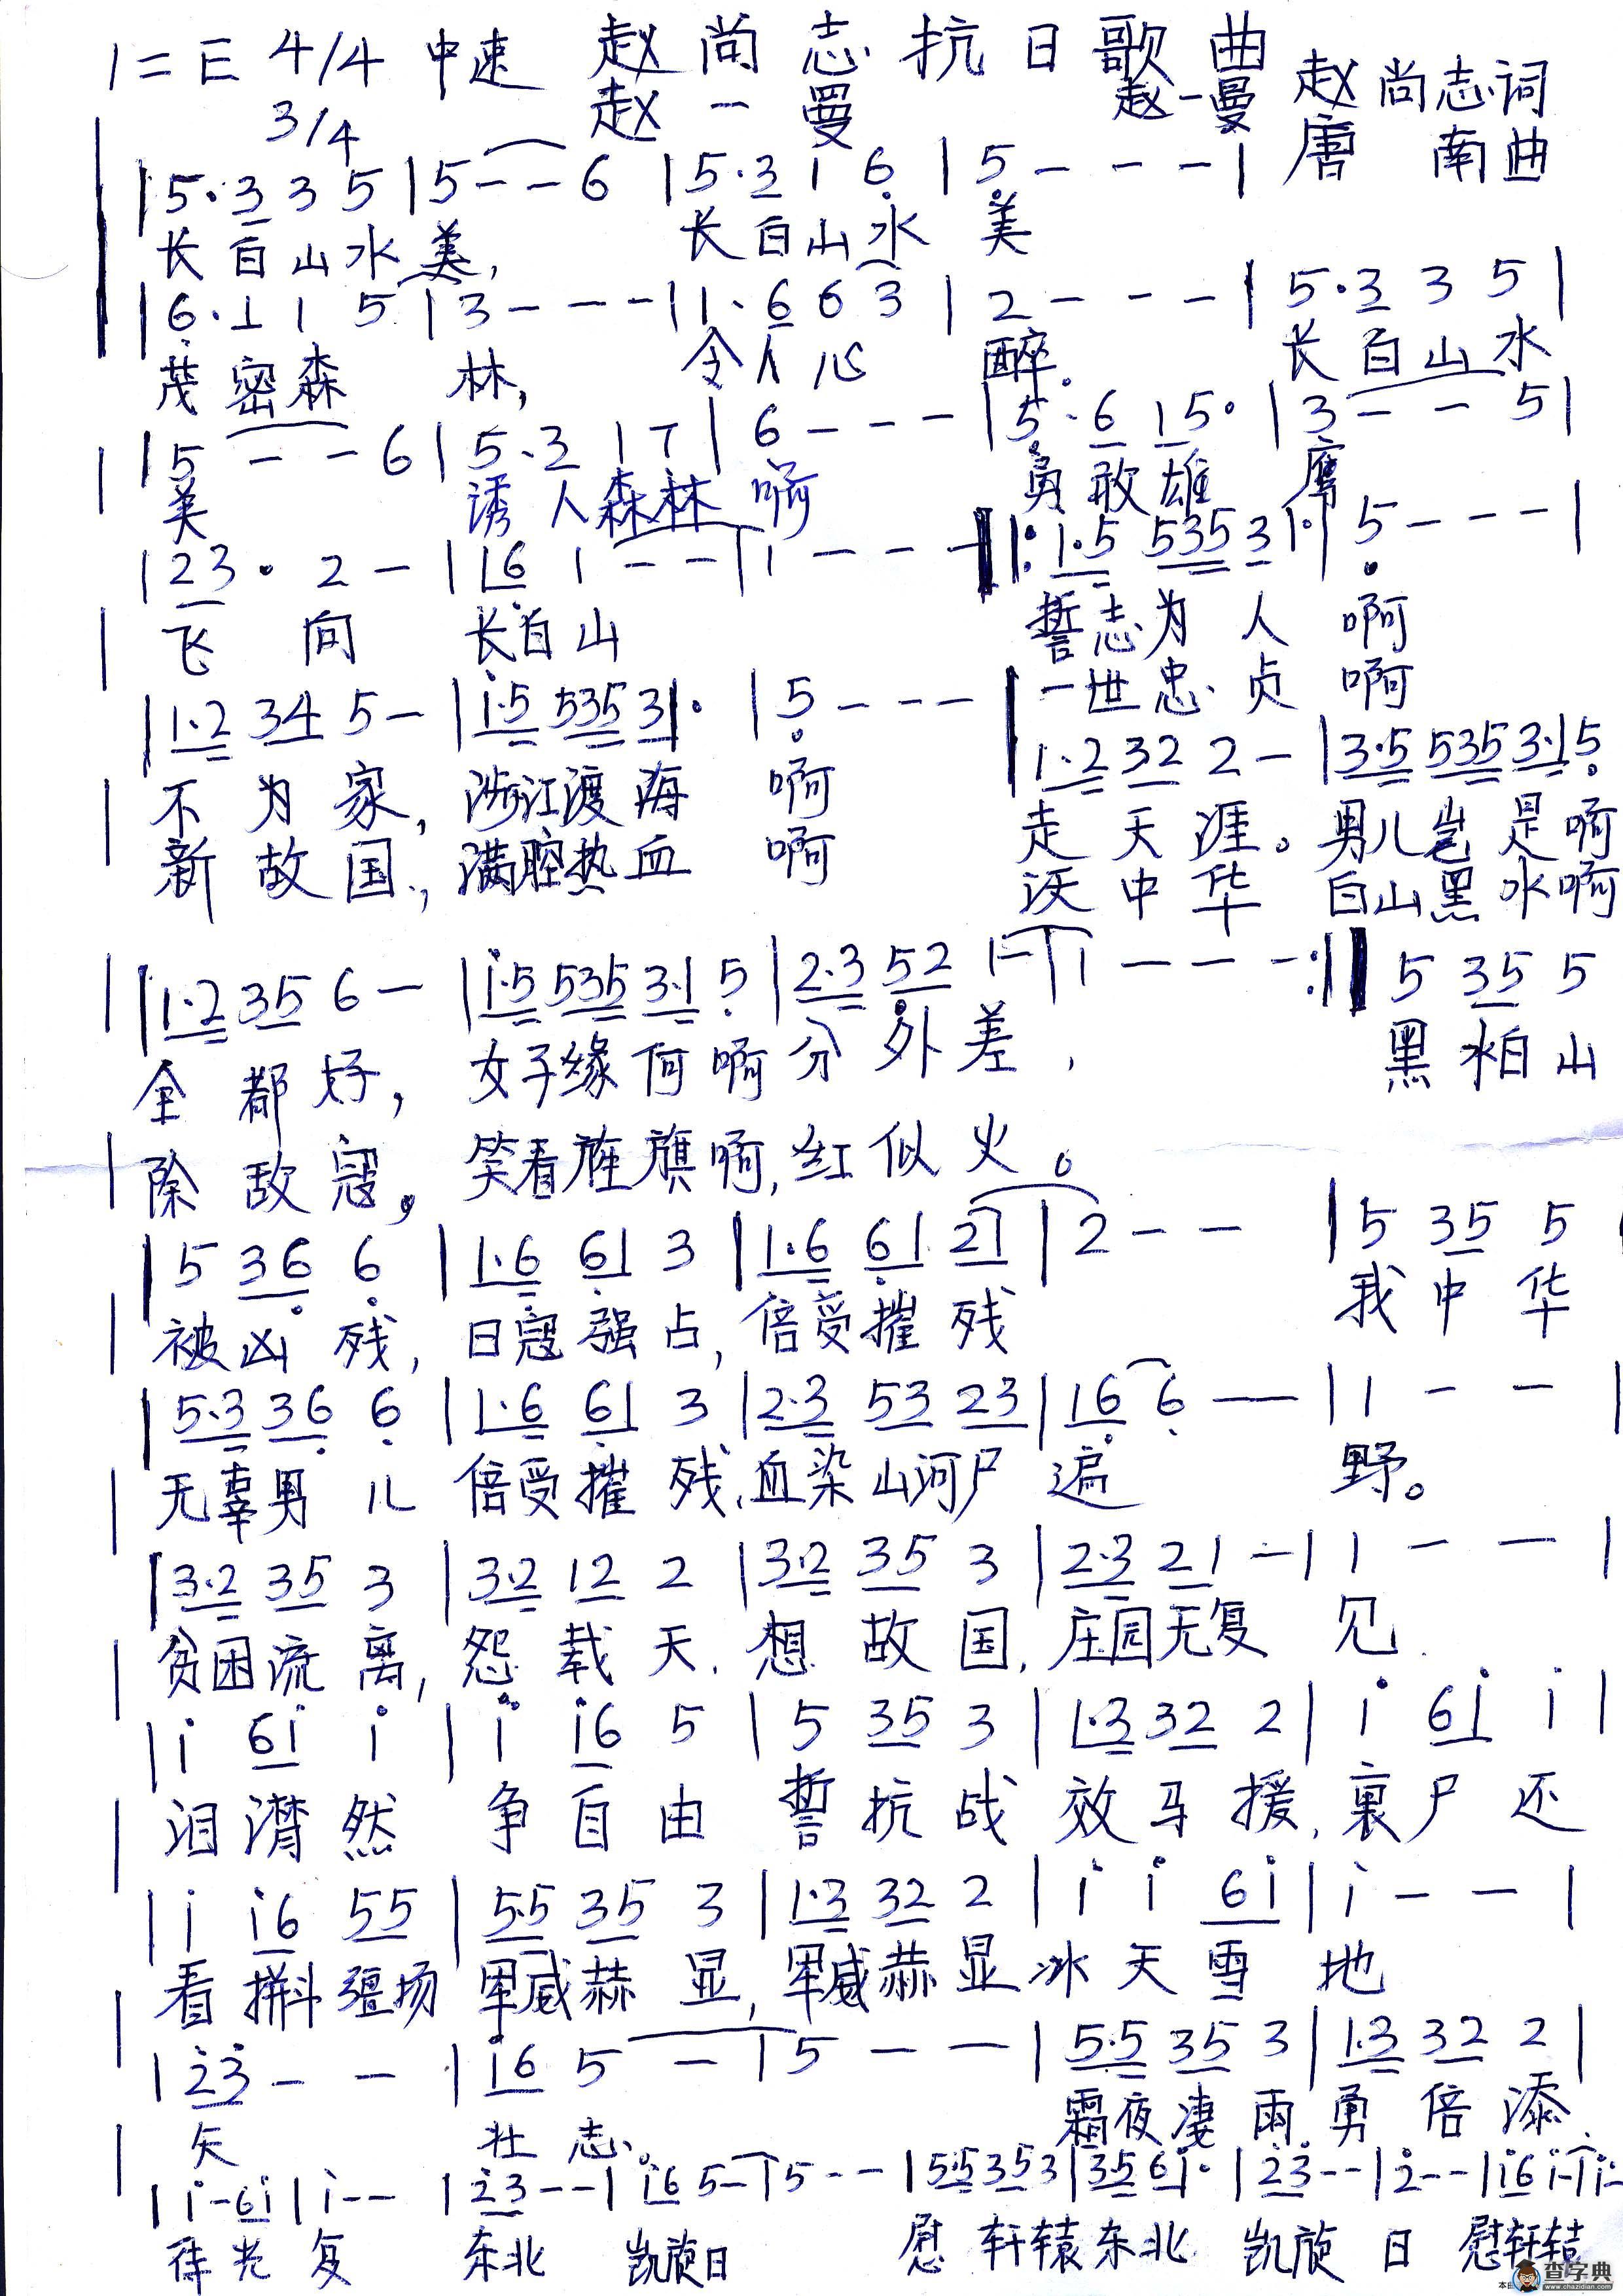 1=E 4/4 中速 赵尚志抗日歌曲
3/4 赵一曼 赵一曼 赵尚志词
唐南曲
|5·3 3 5|5--6|5·3 1 6|5---|
长白山水美, 长白山水美
|6·1 1 5|3---|1·6 6 3|2---|5·3 3 5|
茂密森林, 令人心醉. 长白山水
|5--6|5·3 1 7|6---|5·6 15·|3--5|
美 诱人森林啊 勇敢雄鹰
|23·2-|16 1--|1---‖:1·5 535 3 1·|5---|
飞向 长白山 誓志为人啊
一世忠贞啊
|1·2 34 5-|1·5 535 31·|5---|1·2 32 2-|3·5 535 3·1 5
不为家, 涉江渡海啊 走天涯。男儿岂是啊
新故国., 满腔热血啊 沃中华 白山黑水啊
|1·2 35 6-|1·5 535 3·1 5|2·3 52 1-|1---:‖5 35 5
全都好, 女子缘何啊 分外差, 黑水白山
除敌寇, 笑看旌旗啊, 红似火。
|5 36 6|1·6 61 3|1·6 61 21|2--|5 35 5
被凶残, 日寇强占, 倍受摧残 我中华
|5·3 36 6|1·6 61 3|2·3 53 23|16 6-|1--|
无辜男儿 倍受摧残, 血染山河尸遍 野。
|3·2 35 3|3·2 12 2|3·2 35 3|2·3 21-|1--|
贫困流离, 怨载天. 想故国, 庄园无复见
|i 6i i|i i6 5|5 35 3|1·3 32 2|i 6i i|
泪潸然 争自由 誓抗战 效马援, 裹尸还
|i i6 55|5·5 35 3|1·3 32 2|i i 6i|i--|
看拼斗疆场 军威赫显, 军威赫显 冰天雪地
|23--|i6 5-|5--|5·5 35 3|1·3 32 2|
矢 壮志。 霜夜凄雨, 勇倍添
|i-6i|i--|23--|i6 5-|5--|5·5 35 3|35 6i·|23--|2--|i6 i-|i-
待光复 东北 凯旋日 慰轩辕东北 凯旋日 慰轩辕
查字典
www.chazidian.com